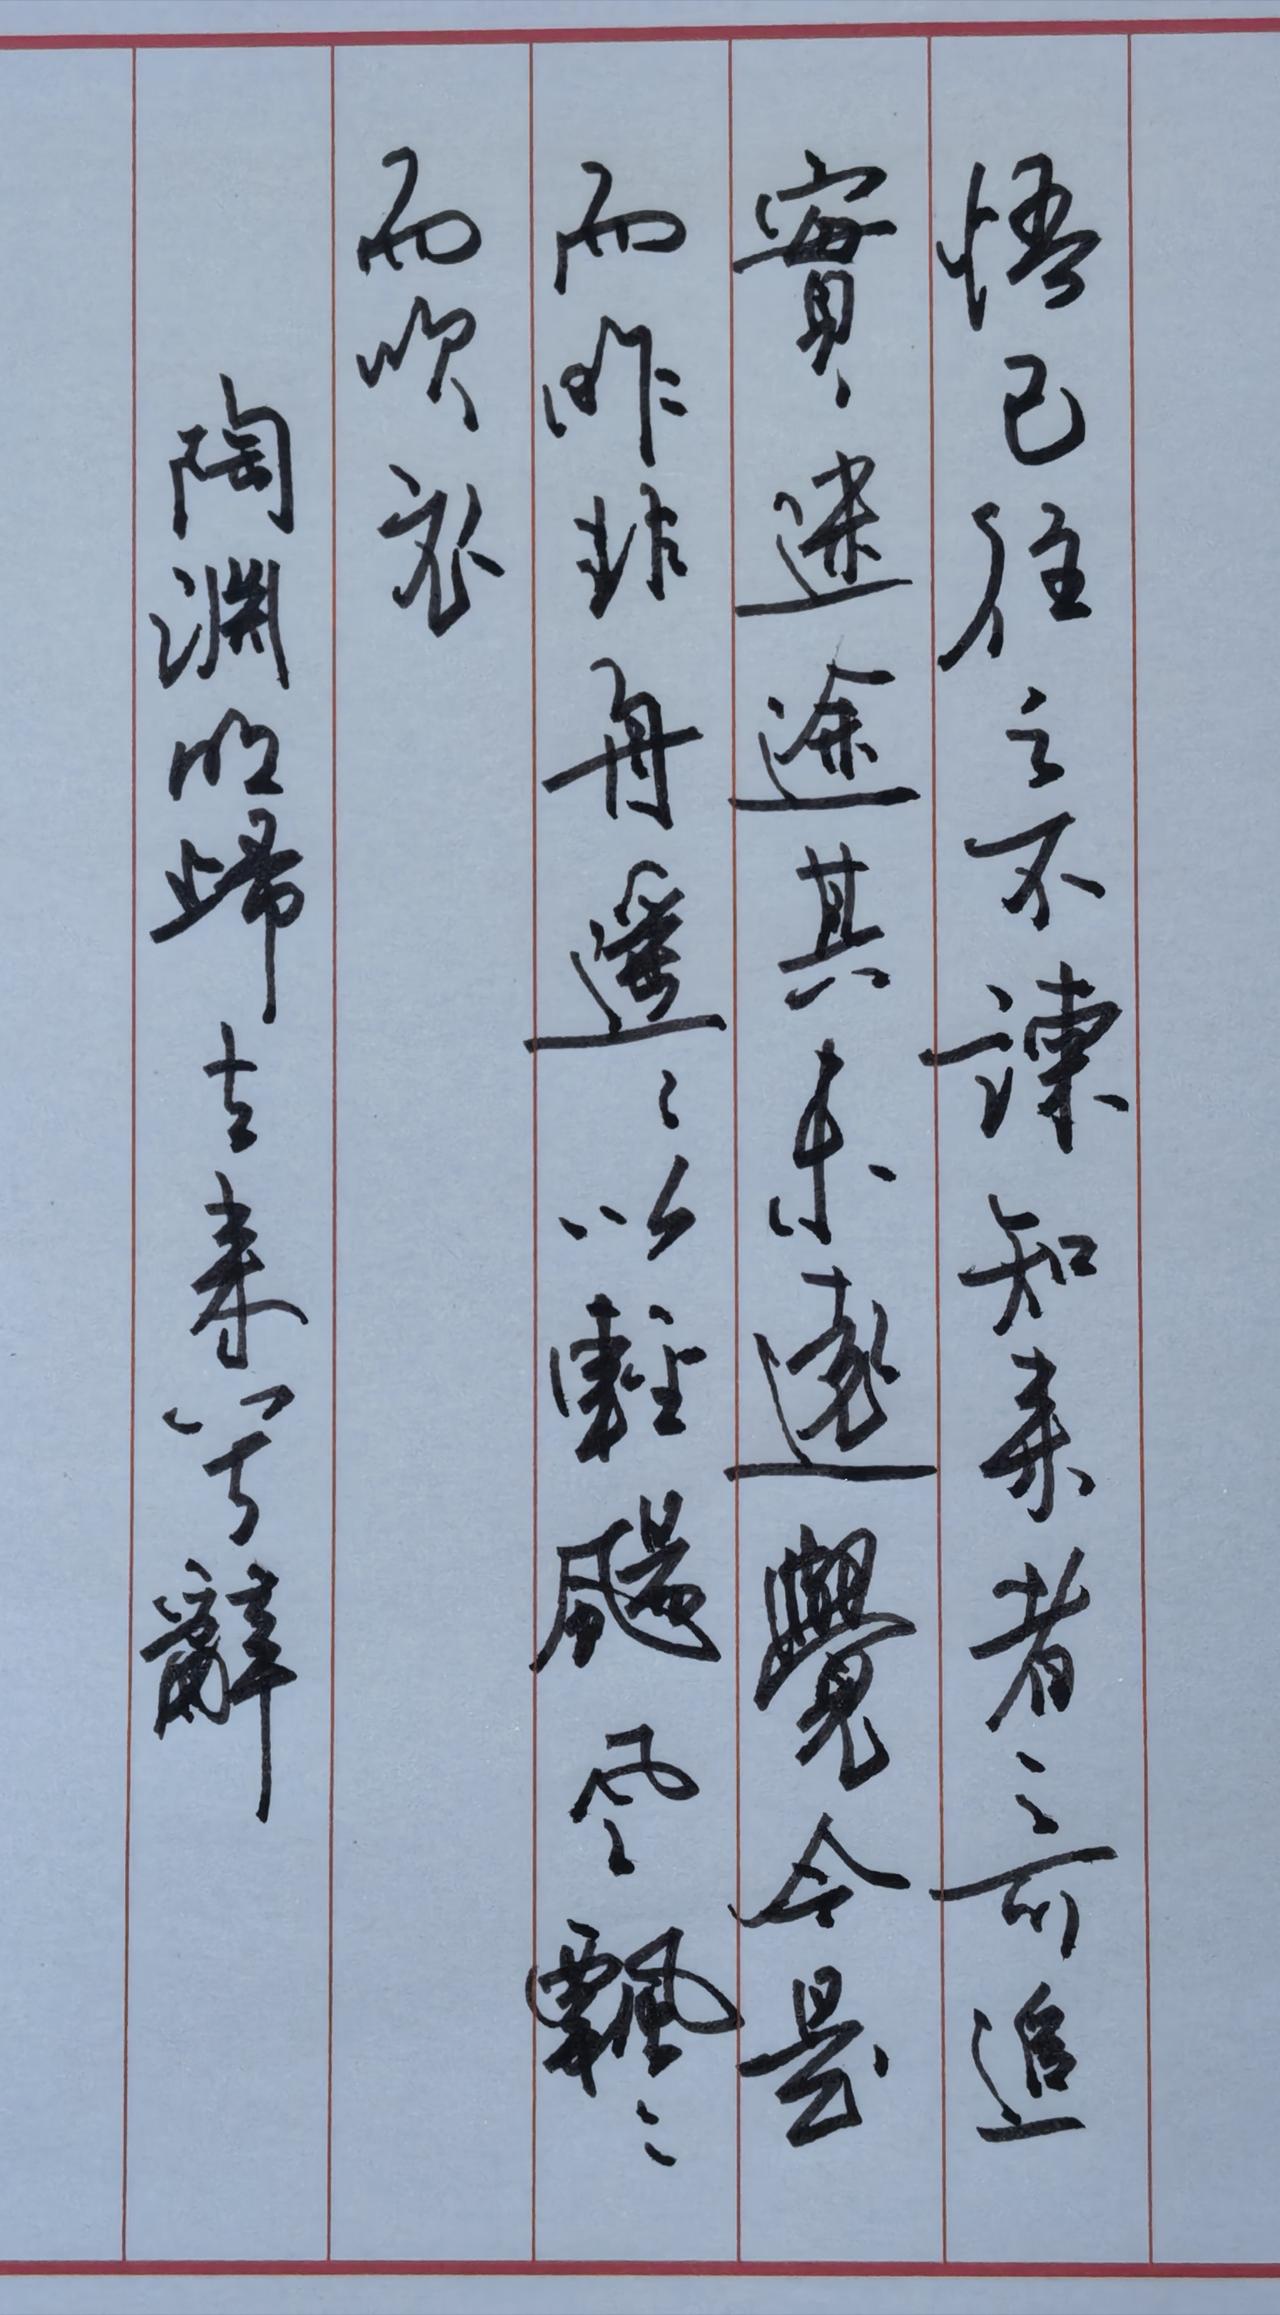 悟已往之不諫知来者之可追
實迷途其未遠覺今是
而昨非舟遙〻以輕颺風飄〻
而吹衣
陶淵明歸去来兮辭